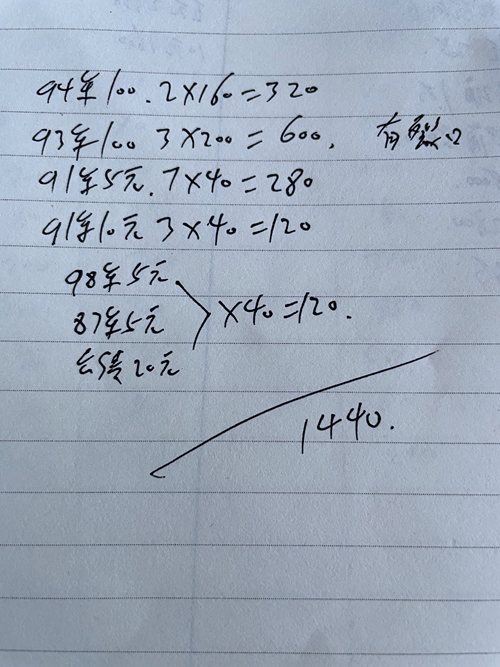 94年100.2×160=320
93年100 3×200=600. 有裂口
91年5元.7×40=280
91年10元 3×40=120
98年5元
87年5元 ×40=120.
20元
1440.